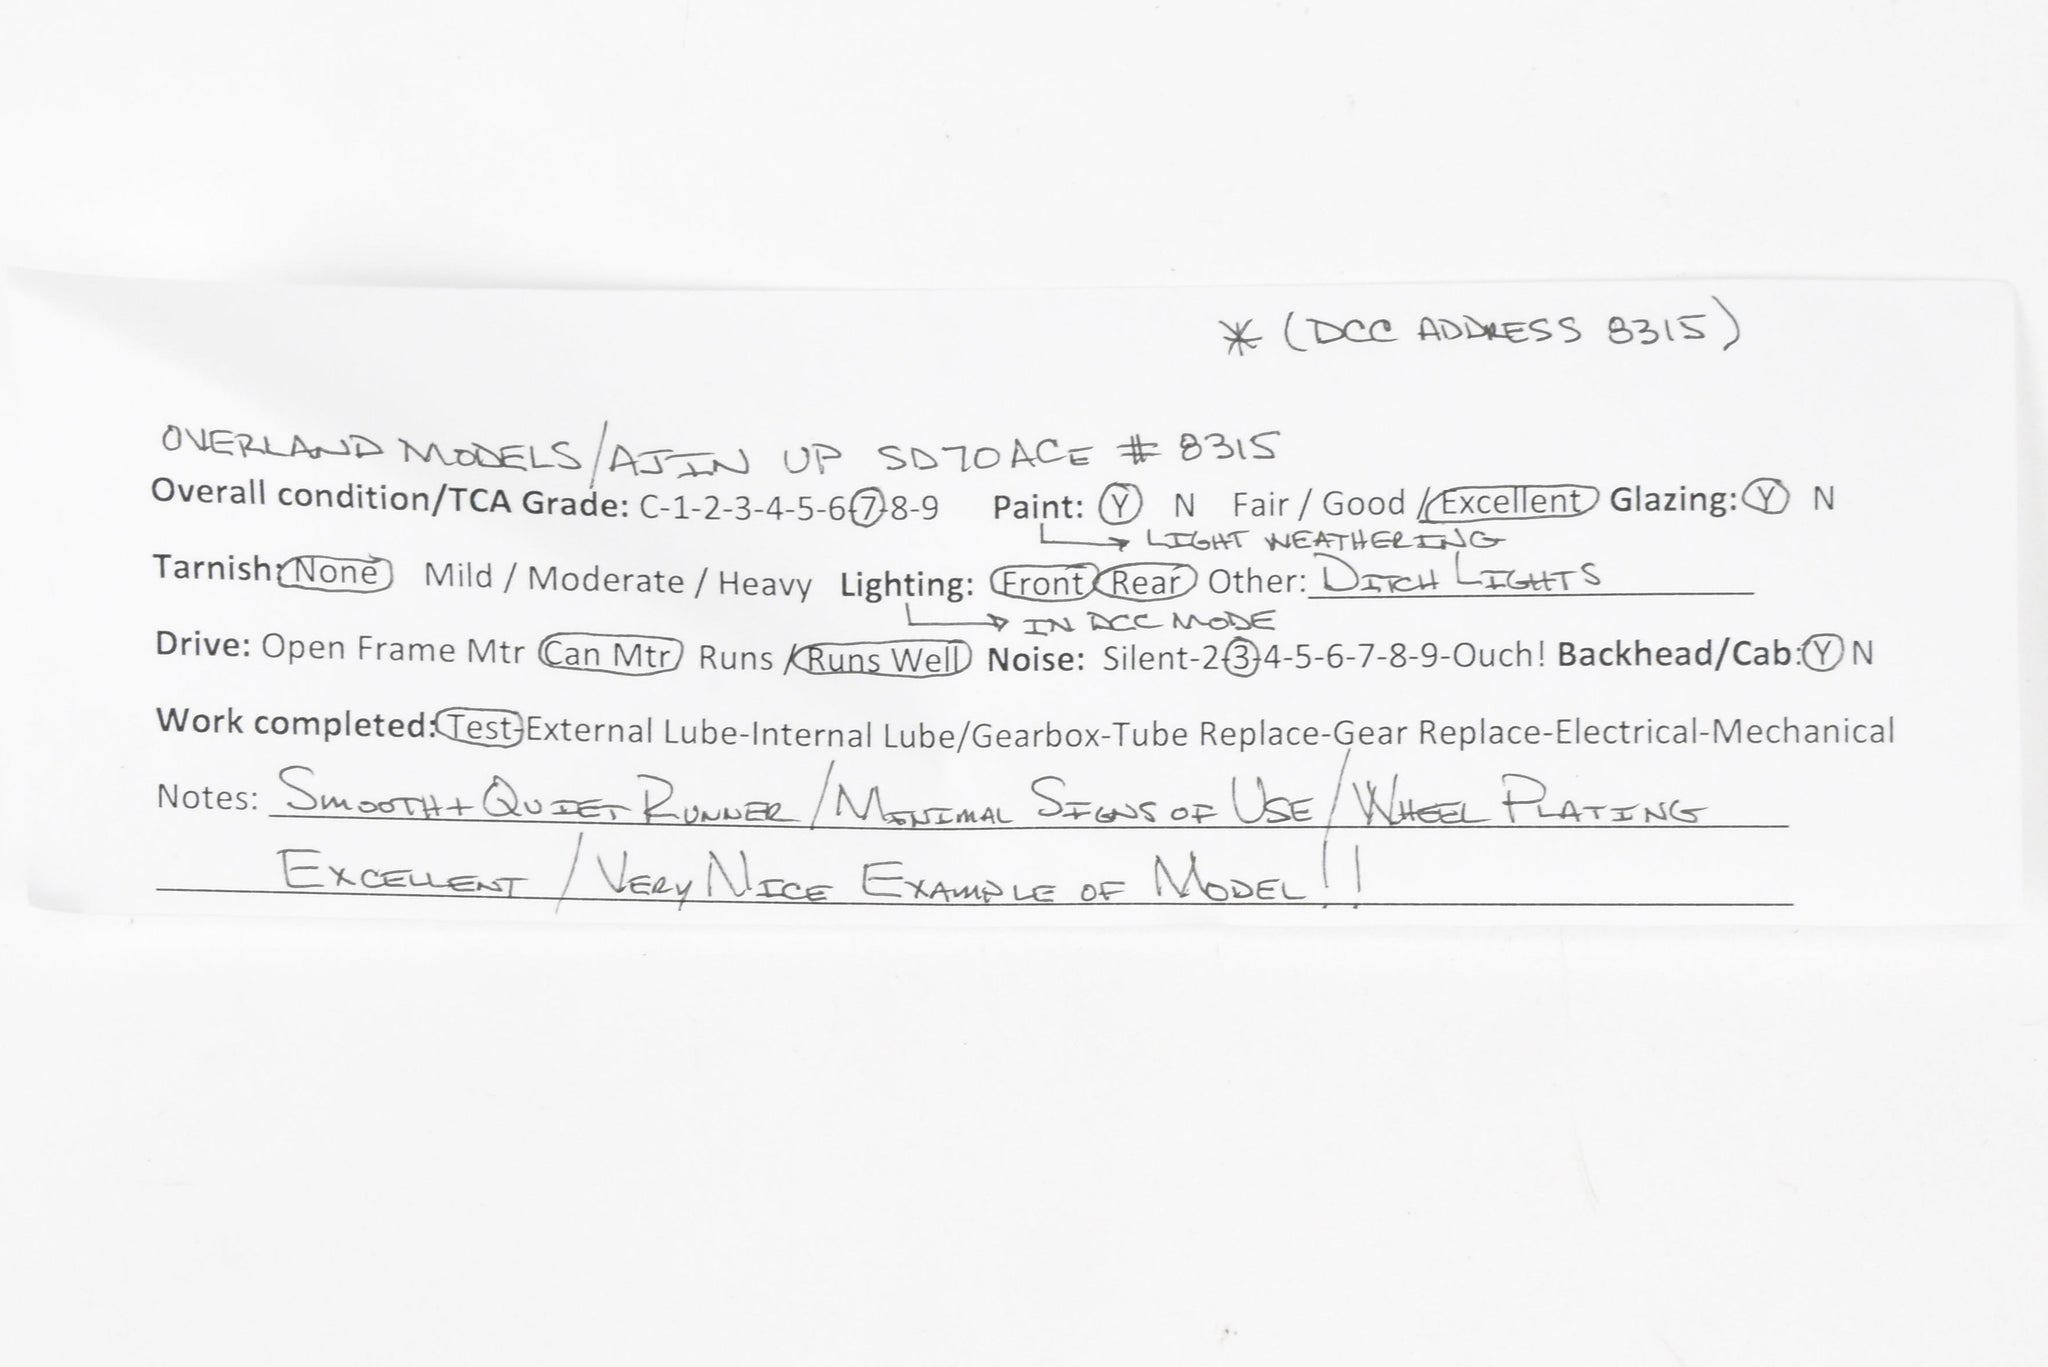 * (DCC ADDRESS 8315)
OVERLAND MODELS/AJIN UP SD70ACE # 8315
Overall condition/TCA Grade: C-1-2-3-4-5-6-7-8-9 Paint: Y N Fair / Good / Excellent Glazing: Y N
LIGHT WEATHERING
Tarnish: None Mild / Moderate / Heavy Lighting: Front Rear Other: DITCH LIGHTS
IN DCC MODE
Drive: Open Frame Mtr Can Mtr Runs / Runs Well Noise: Silent-2-3-4-5-6-7-8-9-Ouch! Backhead/Cab: Y N
Work completed: Test-External Lube-Internal Lube/Gearbox-Tube Replace-Gear Replace-Electrical-Mechanical
Notes: SMOOTH + QUIET RUNNER / MINIMAL SIGNS OF USE / WHEEL PLATING
EXCELLENT / VERY NICE EXAMPLE OF MODEL!!